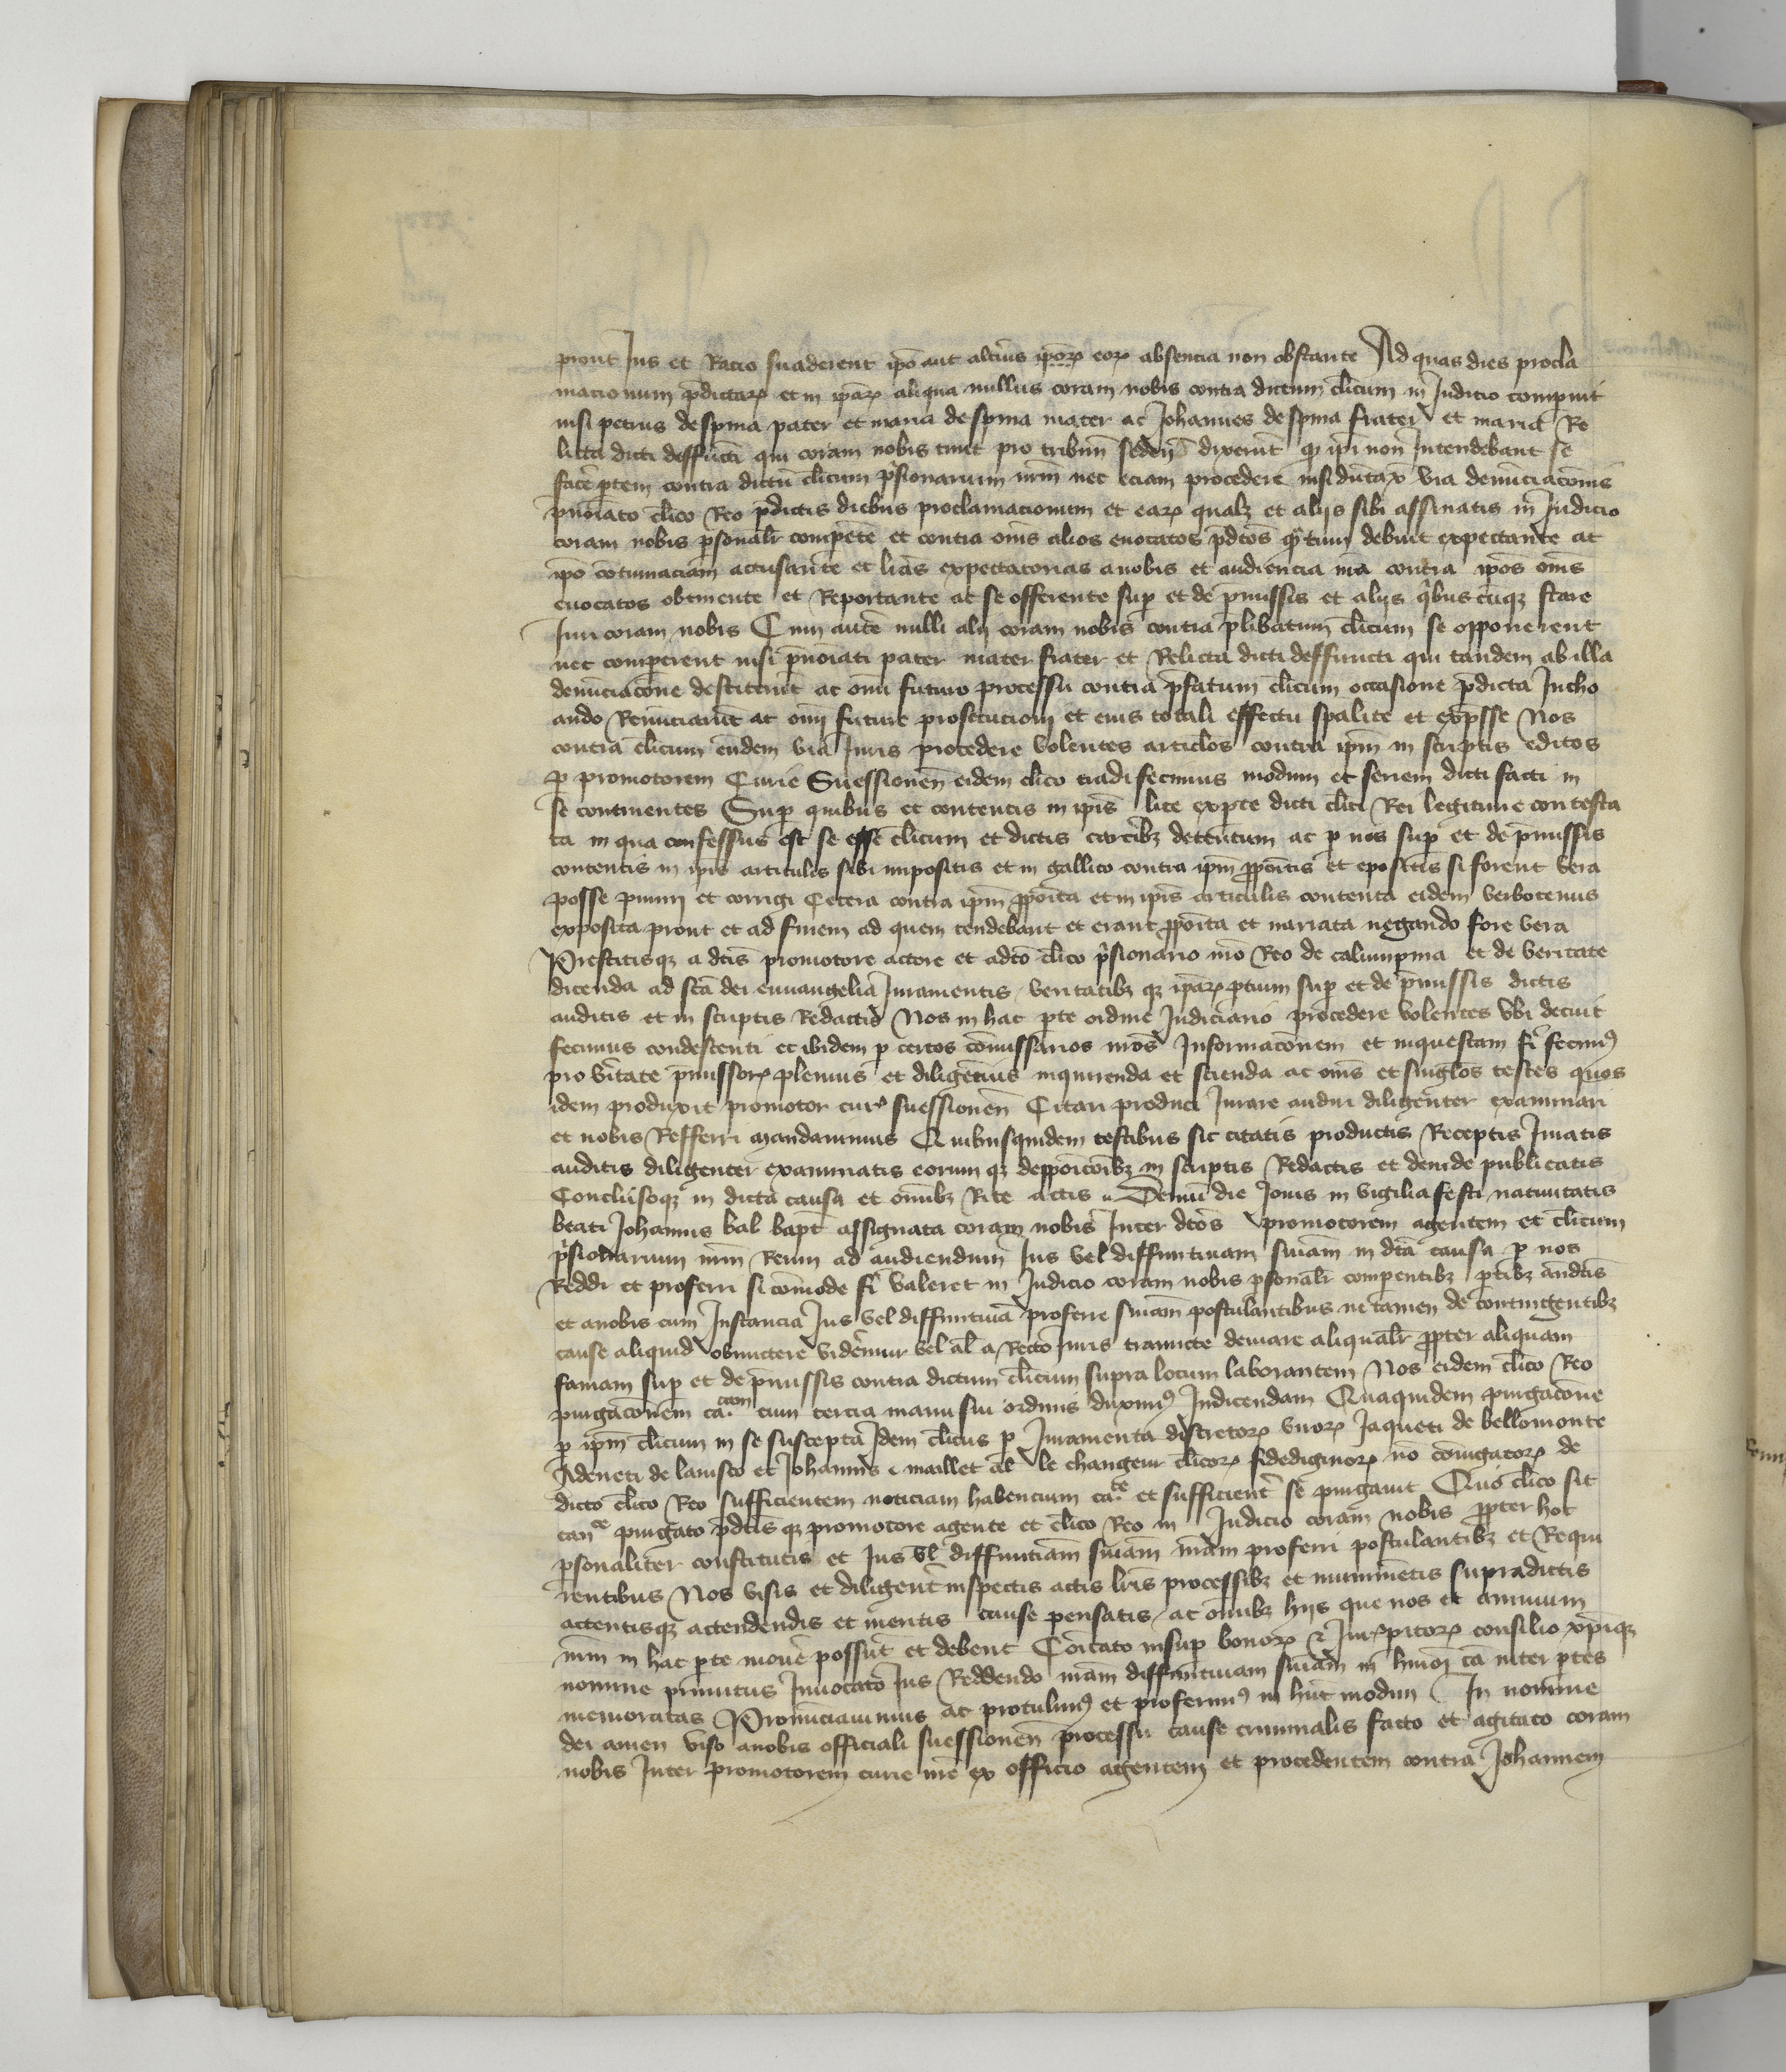 prout Jus et Racio suaderent ipo aut alterius ipoꝝ eoꝝ absencia non obstante Ad quas dies procla
macionum p̄dictaꝝ et in ipaꝝ aliqua nullus coram nobis contra dictum cl̄icum in Judicio comparuit
nisi petrus de spina pater et maria de spina mater ac Johannes de spina frater et maria Re
licta dicti deffucti qui coram nobis tunc pro tribun̄ seden̄ dixerūt qꝫ ip̄i non Intendebant se
facē ꝑtem contra dictū cl̄icum p̄sionarium nr̄m nec eciam procedere nisi dūtax via denūciacōnis
p̄noīato cl̄ico Reo p̄dictis diebus proclamacionum et eaꝝ qualꝫ et alijs sibi assinatis in Judicio
coram nobis ꝑsonalr̄ compētē et contra om̄s alios euocatos p̄dtōs qᵃtum debuit expectante ac
ipō cōtumaciam accusante et lr̄as expectatorias a nobis et audiencia nr̄a contra ipōs om̄s
euocatos obtinente et Reportante ac se offerente suꝑ et de p̄missis et alijs q̄bus cūqꝫ stare
Juri coram nobis Cum autē nulli alij coram nobis contra p̄libatum cl̄icum se opponerent
nec comperent nisi p̄noīati pater mater frater et Relicta dicti deffuncti qui tandem ab illa
denūciacōne destiterūt ac om̄i futuro processu contra p̄fatum cl̄icum occasione p̄dicta Incho
ando Renūciarūt ac om̄i future prosecucioni et eius totali effectu sp̄alitē et exp̄sse Nos
contra cl̄icum eūdem via Juris procedere volentes articlos contra ip̄m in scriptis editos
ꝑ promotorem Curie Suessionēn eidem cl̄ico tradi fecimus modum et seriem dicti facti in
se continentes Suꝑ quibus et contentis in ip̄is lite ex ꝑte dicti cl̄ici Rei legitime contesta
ta in qua confessus est se essē cl̄icum et dictis carcibꝫ detentum ac ꝑ nos suꝑ et de p̄missis
contentis in ip̄is articulis sibi impositis et in gallico contra ip̄m ꝓpoītis et expositis si forent vera
posse puniri et corrigi Cetera contra ip̄m ꝓpoīta et in ip̄is articulis contenta eidem verbotenus
exposita prout et ad finem ad quem tendebant et erant ꝓpoīta et narrata negando fore vera
Prestitisqꝫ a dc̄is promotore actore et a dcō cl̄ico p̄sionario nr̄o Reo de calumpnia et de veritate
dicenda ad sc̄a dei euuangelia Juramentis veritatibꝫ qꝫ ipaꝝ ꝑtium suꝑ et de p̄missis dictis
auditis et in scriptis Redactis Nos in hac ꝑte ordine Judiciario procedere volentes vbi decuit
fecimus condescenti et ibidem ꝑ certos cōmissarios nr̄os Informacōnem et inquestam fi fecimꝰ
pro vitate p̄missoꝝ plenius et diligēcius inquirenda et scienda ac om̄s et singlos testes quos
idem produxit promotor curᵉ suessionēn Citari produci Jurare audiri diligenter examinari
et nobis Refferri mandauimus Quibusquidem testibus sic citatis productis Receptis Juratis
auditis diligenter examinatis eorum qꝫ deposicōnibꝫ in scriptis Redactis et deinde publicatis
Conclusoqꝫ in dicta causa et om̄ibꝫ Rite actis Demū die Jouis in vigilia festi natiuitatis
beati Johannis bal bapt̄ assignata coram nobis Inter dcōs promotorem agentem et cl̄icum
p̄sionarium nr̄m Reum ad audiendum Jus vel diffinitiuam sniam in dcā causa ꝑ nos
Reddi et proferri si cōmode fi valeret in Judicio coram nobis ꝑsonalr̄ comperentibꝫ ꝑtibꝫ andcīs
et a nobis cum Instancia Jus vel diffinitiuā proferre sniam postulantibus ne tamen de contingentibꝫ
cause aliquid obmittere viderēmur vel al̄ a Recto Juris tramite deuiare aliqualr̄ ꝓpter aliquam
famam suꝑ et de p̄missis contra dictum cl̄icum supra locum laborantem Nos eidem cl̄ico Reo
purgacōnem caᶜᵃᵐ cum tercia manu sui ordinis duximꝰ Indicendam Quaquidem purgacōne
ꝑ ip̄m cl̄icum in se suscepta Idem cl̄icus ꝑ Juramenta discretoꝝ viroꝝ Jaqueti de bellomonte
Adeneti de lanisco et Johannis maillet al̄ le changeur cl̄icoꝝ fidedignoꝝ nō coniugatoꝝ de
dicto cl̄ico Reo sufficientem noticiam habencium caᶜᵉ et sufficientr̄ se purgauit Quo cl̄ico sic
canᶜᵉ purgato p̄dcīs qꝫ promotore agente et cl̄ico Reo in Judicio coram nobis ꝓpter hoc
ꝑsonaliter constitutis et Jus vl̄ diffinitiuam sniam nr̄am proferri postulantibꝫ et Requi
rentibus Nos visis et diligentr̄ inspectis actis lr̄is processibꝫ et munimētis supradictis
actentisqꝫ actendendis et meritis cause pensatis ac om̄ibꝫ hijs que nos et animum
nr̄m in hac ꝑte mouē possūt et debent Coīcato insuꝑ bonoꝝ et Jurisꝑitoꝝ consilio xp̄iqꝫ
nomine primitus Inuocato Jus Reddendo nr̄am diffinitiuam sniam in huiꝰ cā inter ꝑtes
memoratas Pronūciauimus ac protulimꝰ et proferimꝰ in hūc modum In nomine
dei amen viso a nobis officiali suessionēn processu cause criminalis facto et agitato coram
nobis Inter promotorem curie nr̄e ex officio agentem et procedentem contra Johannem